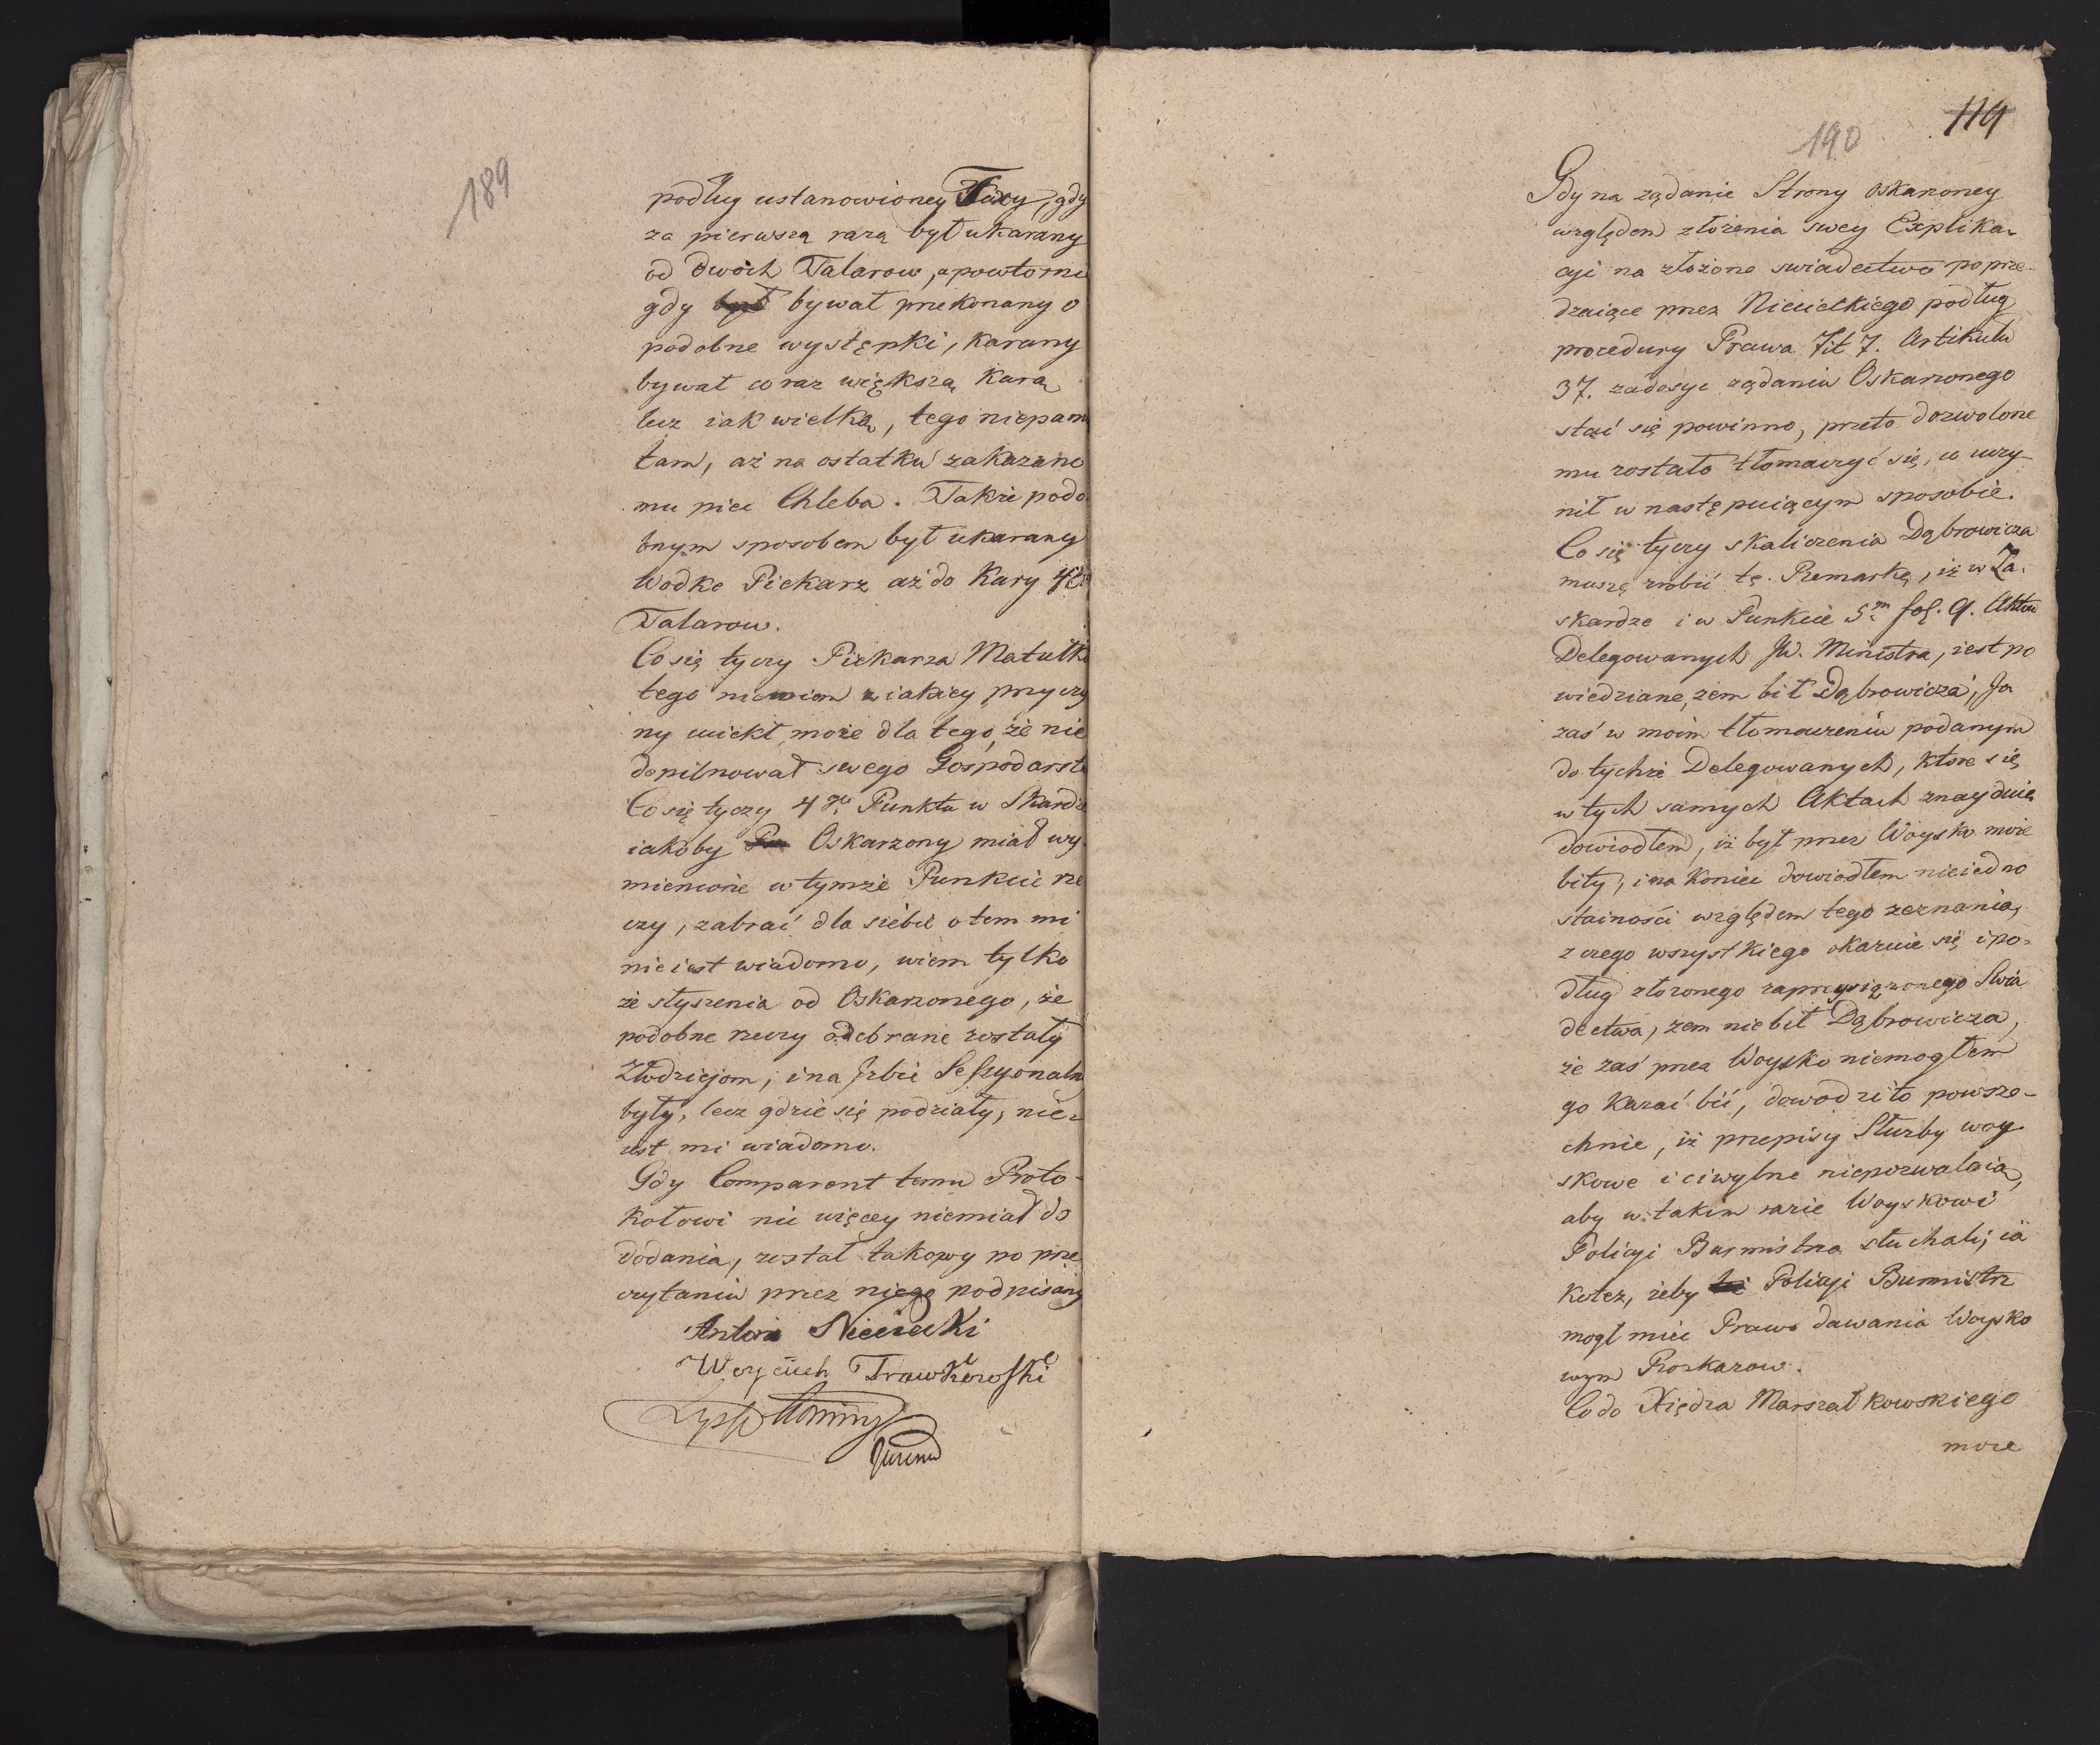 189
podług ustanowioney Taxy, gdy
za pierwszą razą był ukarany
od dwóch Talarow, a powtorni
gdy był bywał przekonany o
podobne występki, karany
bywał coraz większą karą
lecz iak wielką, tego niepam
tam, aż na ostatku zakazano
mu piec Chleba. Także podo
bnym sposobem był ukarany
Wodke Piekarz aż do Kary
Talarow.
Co się tyczy Piekarza Matułk
tego niewiem z iakiey przyczy
ny uciekł, może dla tego, że nie
dopilnował swego Gospodarst
Co się tyczy 4go Punktu w Skardze
iakoby Oskarzony miał wy
mienione w tymże Punkcie rze
czy, zabrać dla siebie o tem mi
nie iest wiadomo, wiem tylko
ze słyszenia od Oskarzonego, że
podobne rzeczy odebrane zostały
Złodziejom, i na Jzbie Sessyonaln
były, lecz gdzie się podziały, nie-
iest mi wiadomo.
Gdy Comparent temu Proto-
kołowi nic więcey niemiał do
dodania, został takowy po prze
czytaniu przez niego podpisany
Antoni Nieciecki
Woyciech Trawkowski
190
119
Gdy na ządanie Strony oskarzoney
względem złożenia swey Explika-
cyi na złożone swiadectwo poprze-
dzaiące przez Nieciekiego podług
procedury Prawa Tit 7. Artikułu
37. zadosyc ządaniu Oskarzonego
stać się powinno, przeto dozwolone
mu zostało tłomaczyć się, co uczy-
nił w następuiącym sposobie.
Co się tyczy skaliczenia Dąbrowicza
muszę zrobić tę Remarkę, iż w Za-
skardze i w Punkcie 5m fol. 9. Aktow
Delegowanych JW. Ministra, iest po
wiedziane, żem bił Dąbrowicza, Ja
zaś w moim tłomaczeniu podanym
do tychże Delegowanych, ktore się
w tych samych Aktach znayduie
dowiodłem, iż był przez Woysko może
bity, i na koniec dowiodłem nieiedno
stainości względem tego zeznania,
z czego wszystkiego okazuie się i po-
dług złożonego zaprzysiężonego Swia
dectwa, żem nie bił Dąbrowicza,
że zaś przez Woysko niemogłem
go kazać bić, dowodzi to powsze-
chnie, iż przepisy Służby woy
skowe i cywylne niepozwalaią,
aby w takim razie Woyskowi
Policyi Burmistrza słuchali; ia
kotez, żeby Policyi Burmistrz
mogł mieć Prawo dawania Woysko
wym Rozkazow.
Co do Xiędza Marszałkowskiego
może